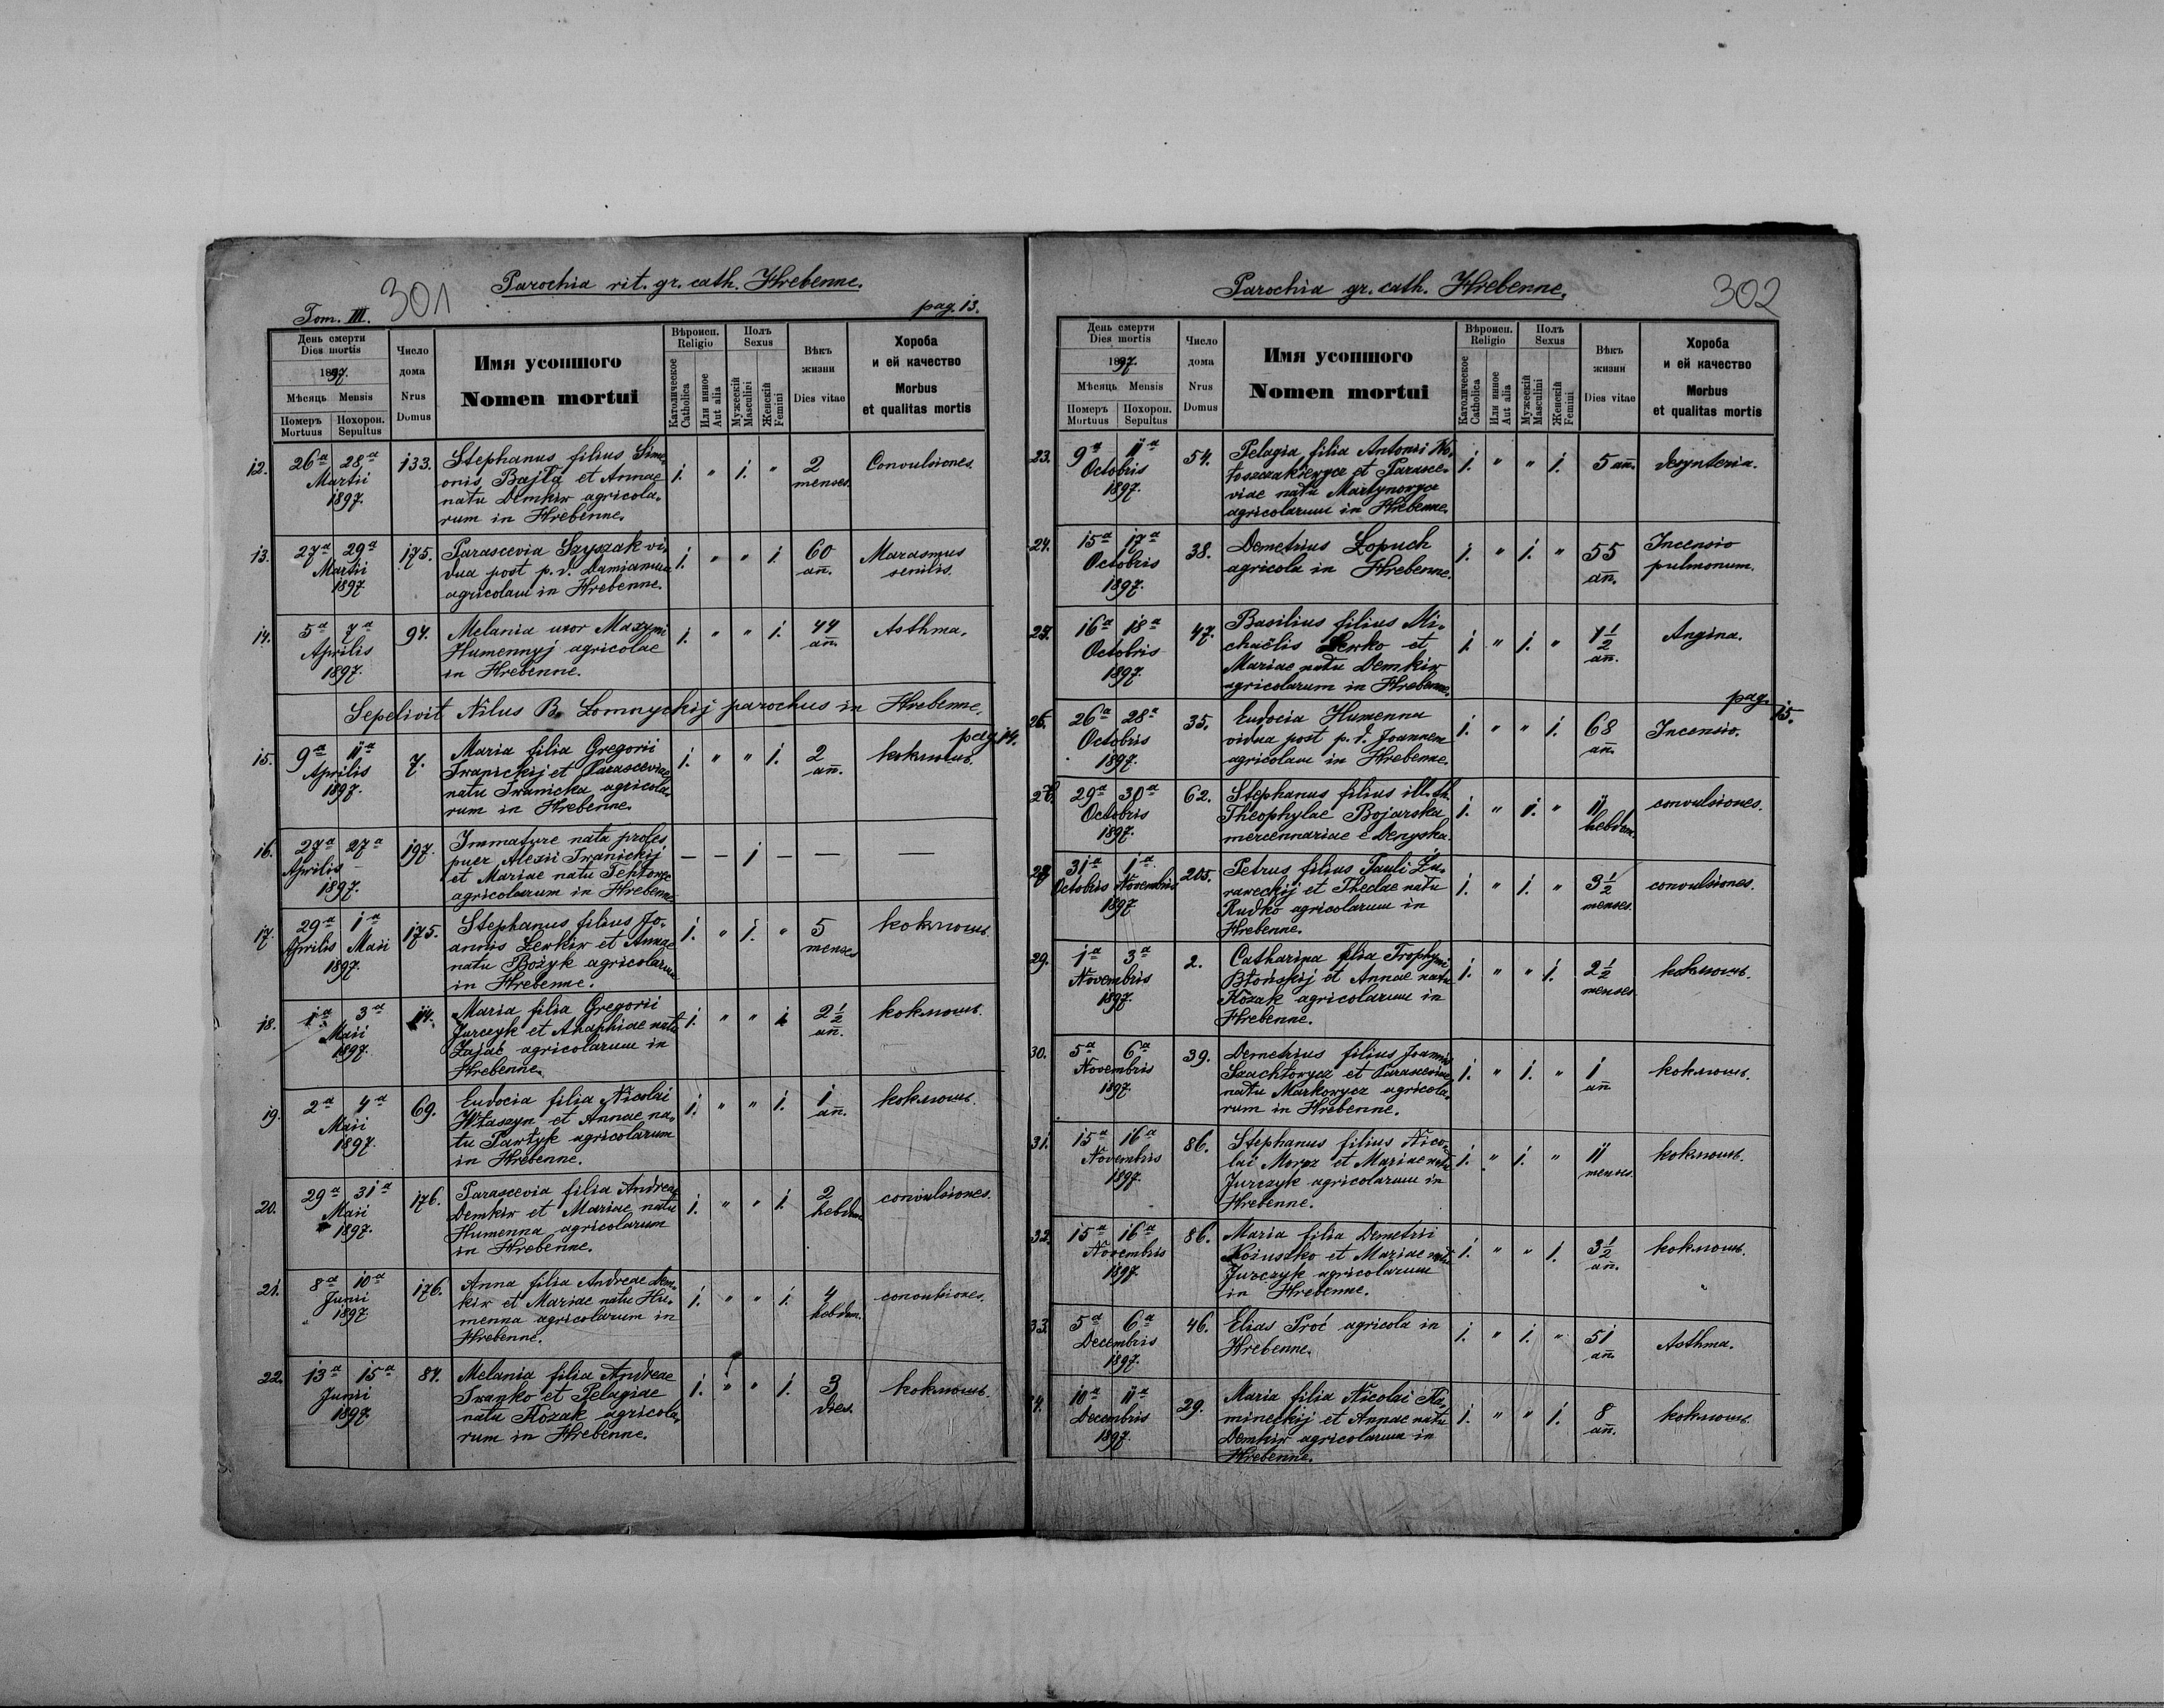 301
Parochia rit. gr. cath. Hrebenne.
Tom. III.
pag. 13.
День смерти
Dies mortis
1897.
Мѣсяць Mensis
Померъ Mortuus
Похорон. Sepultus
Число дома
Nrus Domus
Имя усопшого
Nomen mortui
Вѣроисп.
Religio
Католическое Catholica
Или инное Aut alia
Полъ
Sexus
Мужескій Masculini
Женскій Femini
Вѣкъ жизни
Dies vitae
Хороба
и ей качество
Morbus
et qualitas mortis
12. 26ª 28ª Martii 1897. 133. Stephanus filius Sime-
onis Bajła et Annae
natu Demkiw agricola-
rum in Hrebenne.
1. " 1. " 2 menses. Convulsiones.
13. 27ª 29ª Martii 1897 175. Parascevia Szyszak vi-
dua post p. d. Damianum
agricolam in Hrebenne.
1. " " 1. 60 an̄. Marasmus senilis.
14. 5ª 7ª Aprilis 1897. 94. Melania uxor Maxymi
Humennyj agricolae
in Hrebenne.
1. " " 1. 44 an̄. Asthma.
Sepelivit Nilus B. Łomnyckij parochus in Hrebenne.
pag. 14.
15. 9ª 11ª Aprilis 1897. 7. Maria filia Gregorii
Iwanickij et Parasceviae
natu Iwanicka agricola-
rum in Hrebenne.
1. " " 1. 2 an̄. коклюшъ.
16. 27ª 27ª Aprilis 1897. 197. Immature nata proles
puer Alexii Iwanickij
et Mariae natu
agricolarum in Hrebenne
— — 1 — —
17. 29ª 1ª Aprilis Maii 1897. 175. Stephanus filius Jo-
annis Lewkiw et Annae
natu Bożyk agricolarum
in Hrebenne.
1. " 1. " 5 menses коклюшъ.
18. 1ª 3ª Maii 1897. 14. Maria filia Gregorii
Jurczyk et Ahaphiae natu
Zając agricolarum in
Hrebenne.
1. " " 1. 2½ an̄. коклюшъ.
19. 2ª 4ª Maii 1897. 69. Eudocia filia Nicolai
Właszyn et Annae na-
tu Pawłyk agricolarum
in Hrebenne.
1. " " 1. 1 an̄. коклюшъ.
20. 29ª 31ª Maii 1897. 176. Parascevia filia Andreae
Demkiw et Mariae natu
Humenna agricolarum
in Hrebenne.
1. " " 1. 2 hebdom. convulsiones.
21. 8ª 10ª Junii 1897 176. Anna filia Andreae Dem-
kiw et Mariae natu Hu-
menna agricolarum in
Hrebenne.
1. " " 1. 4 hebdom. convulsiones.
22. 13ª 15ª Junii 1897 84. Melania filia Andreae
Iwanko et Pelagiae
natu Kozak agricola-
rum in Hrebenne.
1. " " 1. 3 dies. коклюшъ.
Parochia gr. cath. Hrebenne.
302
День смерти
Dies mortis
1897.
Мѣсяць Mensis
Померъ Mortuus
Похорон. Sepultus
Число дома
Nrus Domus
Имя усопшого
Nomen mortui
Вѣроисп.
Religio
Католическое Catholica
Или инное Aut alia
Полъ
Sexus
Мужескій Masculini
Женскій Femini
Вѣкъ жизни
Dies vitae
Хороба
и ей качество
Morbus
et qualitas mortis
23. 9ª 11ª Octobris 1897. 54. Pelagia filia Antonii Wo-
łoszczakiewycz et Parasce-
viae natu Martynowycz
agricolarum in Hrebenne.
1. " " 1. 5 an̄. desynteria.
24. 15ª 17ª Octobris 1897. 38. Demetrius Łopuch
agricola in Hrebenne.
1. " 1. " 55 an̄. Incensio pulmonum.
25. 16ª 18ª Octobris 1897. 47. Basilius filius Mi-
chaëlis Lewko et
Mariae natu Demkiw
agricolarum in Hrebenne.
1. " 1. " 1½ an̄. Angina.
pag. 15.
26. 26ª 28ª Octobris 1897. 35. Eudocia Humenna
vidua post p. d. Joannem
agricolam in Hrebenne.
1. " " 1. 68 an̄. Incensio.
27. 29ª 30ª Octobris 1897. 62. Stephanus filius ill. th.
Theophylae Bojarska
mercennariae e Denyska.
1. " 1. " 11 hebdom. convulsiones.
28. 31ª 1ª Octobris Novembris 1897. 205. Petrus filius Pauli Żu-
raweckij et Theclae natu
Rudko agricolarum in
Hrebenne.
1. " 1. " 3½ menses. convulsiones.
29. 1ª 3ª Novembris 1897. 2. Catharina filia Trophymi
Błońskij et Annae natu
Kozak agricolarum in
Hrebenne.
1. " " 1. 2½ menses коклюшъ.
30. 5ª 6ª Novembris 1897. 39. Demetrius filius Joannis
Szachtowycz et Parasceviae
natu Markowycz agricola-
rum in Hrebenne.
1. " 1. " 1 an̄ коклюшъ.
31. 15ª 16ª Novembris 1897. 86. Stephanus filius Nico-
lai Moroz et Mariae natu
Jurczyk agricolarum in
Hrebenne.
1. " 1. " 11 menses. коклюшъ.
32. 15ª 16ª Novembris 1897. 86. Maria filia Demetrii
Kościuszko et Mariae natu
Jurczyk agricolarum
in Hrebenne.
1. " " 1. 3½ an̄. коклюшъ.
33. 5ª 6ª Decembris 1897. 46. Elias Proć agricola in
Hrebenne.
1. " 1. " 51 an̄. Asthma.
34. 10ª 11ª Decembris 1897. 29. Maria filia Nicolai Ka-
mineckij et Annae natu
Demkiw agricolarum in
Hrebenne.
1. " " 1. 8 an̄. коклюшъ.